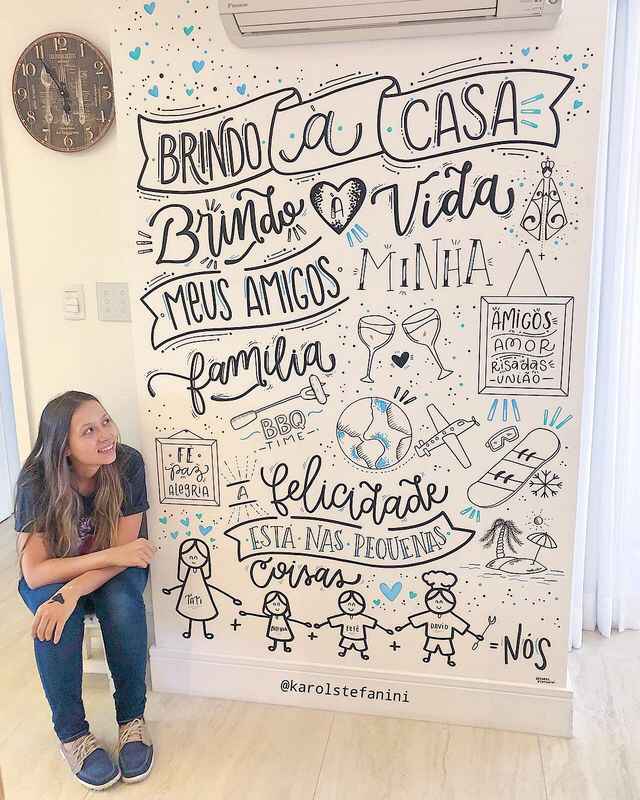 BRINDO à CASA
Brindo À Vida
MEUS AMIGOS MINHA
família
AMIGOS
AMOR
RISADAS
-UNIÃO-
BBQ
TIME
FÉ
paz
ALEGRIA
A felicidade
ESTÁ NAS PEQUENAS
Coisas
TATI + + FEFÊ + DAVID = NÓS
@karolstefanini